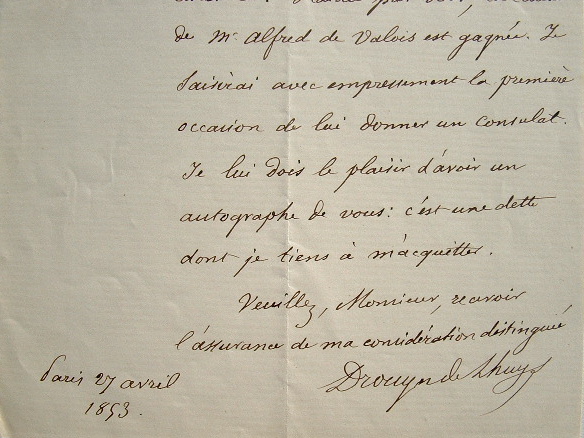 de Mr Alfred de Valois est gagnée. Je
saisirai avec empressement la première
occasion de lui donner un consulat.
Je lui dois le plaisir d'avoir un
autographe de vous: c'est une dette
dont je tiens à m'acquitter.
Veuillez, Monsieur, recevoir
l'assurance de ma considération distinguée
Drouyn de Lhuys
Paris 27 avril
1853.